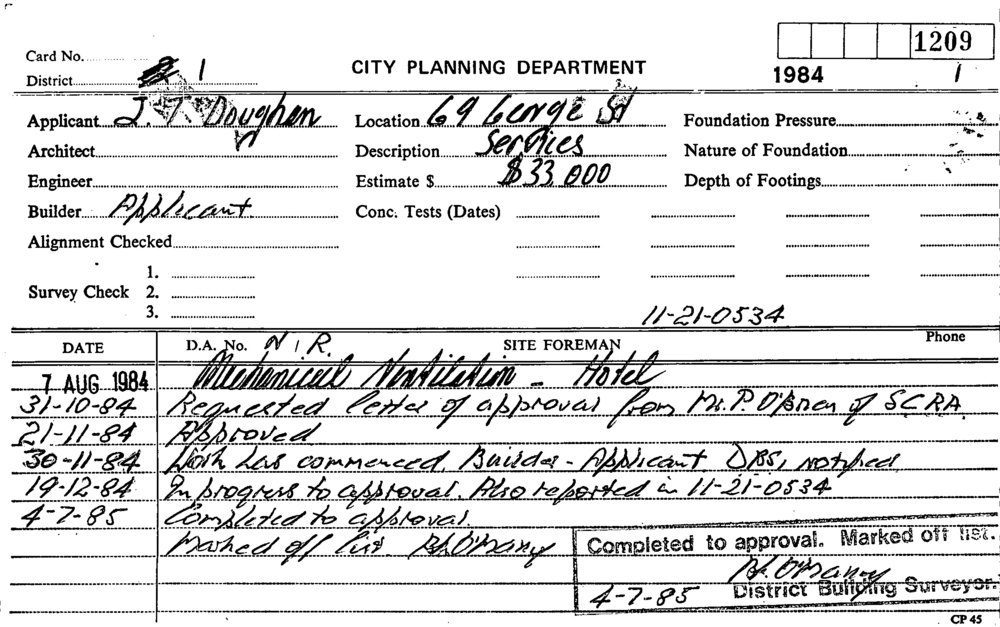 1209
Card No.
District 1
CITY PLANNING DEPARTMENT
1984 1
Applicant J. T. Doughen
Location 69 George St
Foundation Pressure
Architect
Description Services
Nature of Foundation
Engineer
Estimate $ $33,000
Depth of Footings
Builder Applicant
Conc. Tests (Dates)
Alignment Checked
1.
Survey Check 2.
3.
11-21-0534
DATE
D.A. No. N.R.
SITE FOREMAN
Phone
7 AUG 1984 Mechanical Ventilation - Hotel
31-10-84 Requested letter of approval from Mr. P. O'Brien of SCRA
21-11-84 Approved
30-11-84 Work has commenced. Builder - Applicant. DBS, notified
19-12-84 In progress to approval. Also reported in 11-21-0534
4-7-85 Completed to approval.
Marked off list
Completed to approval. Marked off list.
4-7-85 District Building Surveyor.
CP 45